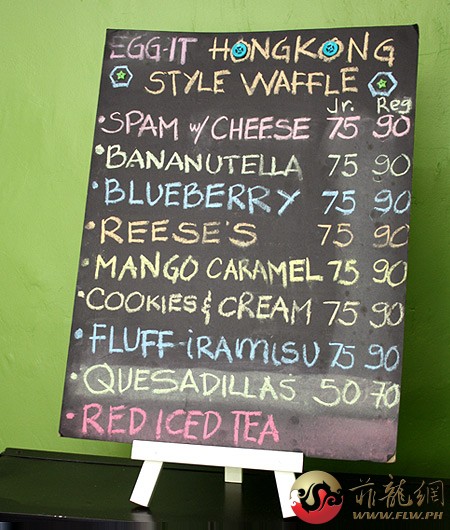 EGG-IT HONGKONG
STYLE WAFFLE
Jr. Reg
• SPAM w/ CHEESE 75 90
• BANANUTELLA 75 90
• BLUEBERRY 75 90
• REESE'S 75 90
• MANGO CARAMEL 75 90
• COOKIES & CREAM 75 90
• FLUFF-iRAMiSU 75 90
• QUESADILLAS 50 70
• RED ICED TEA
菲龍網
WWW.FLW.PH